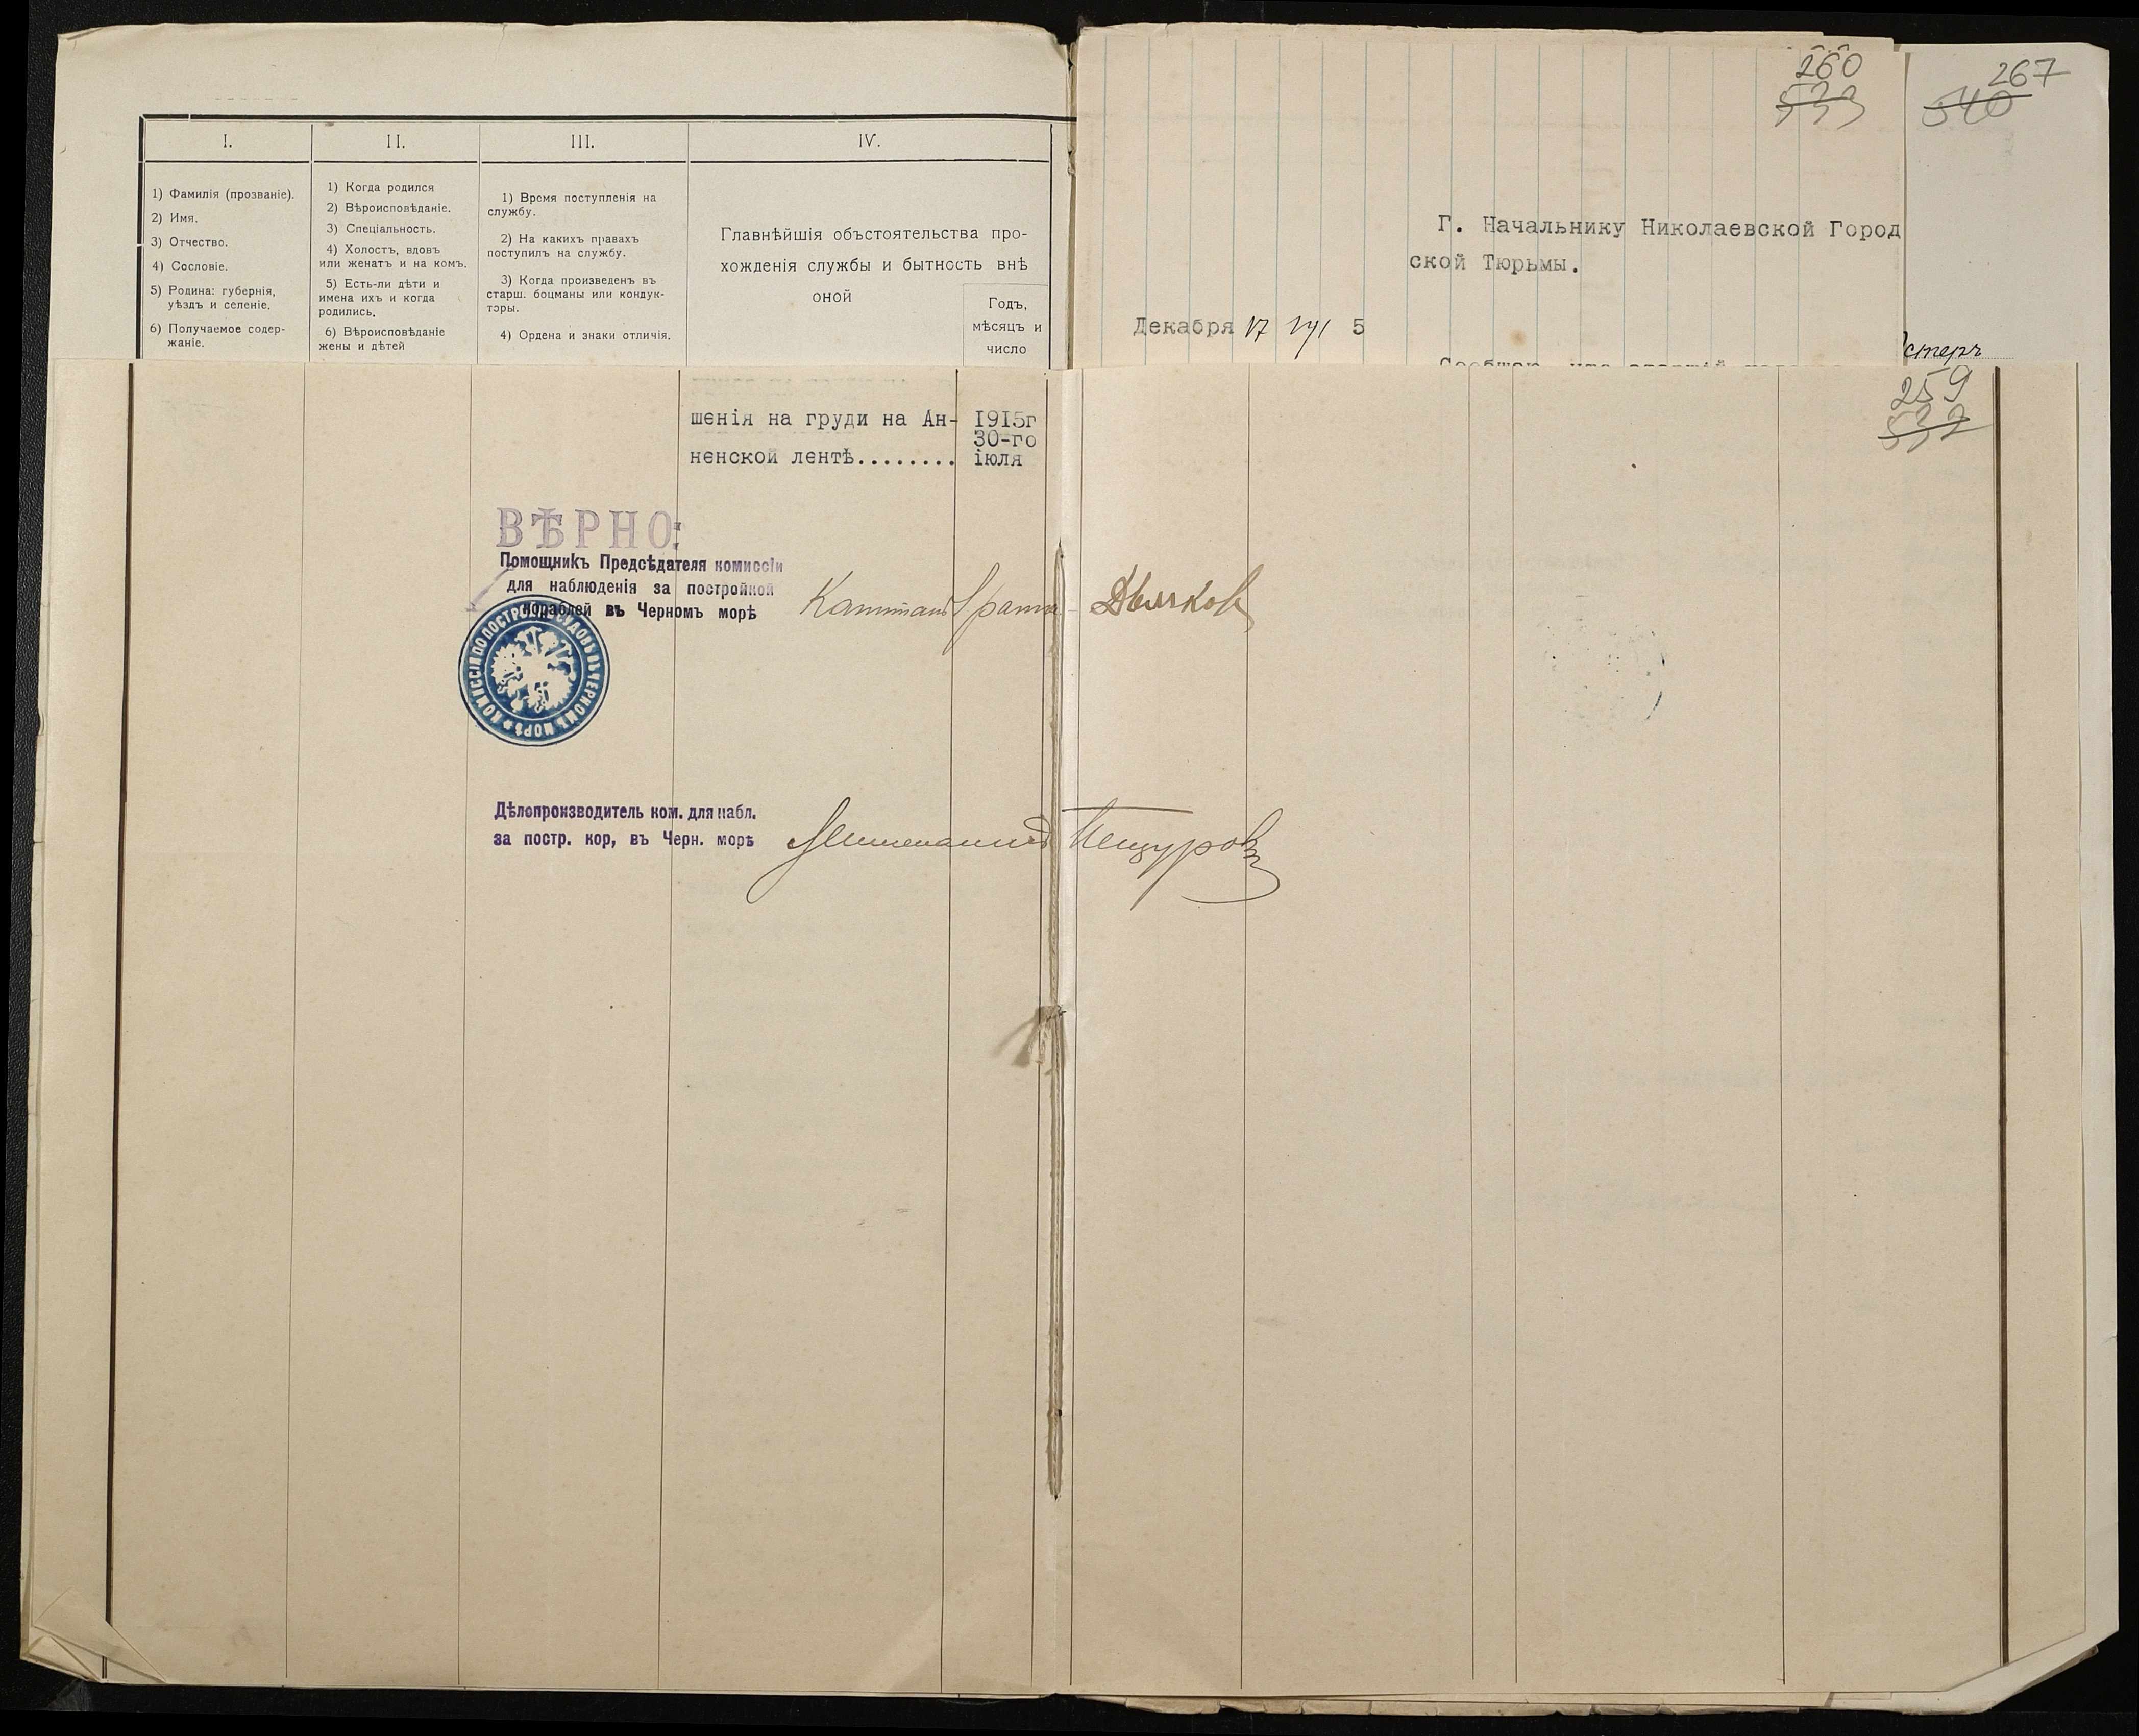 I.
1) Фамилія (прозваніе).
2) Имя.
3) Отчество.
4) Сословіе.
5) Родина: губернія,
уѣздъ и селеніе.
6) Получаемое содер-
жаніе.
II.
1) Когда родился
2) Вѣроисповѣданіе.
3) Спеціальность.
4) Холостъ, вдовъ
или женатъ и на комъ.
5) Есть-ли дѣти и
имена ихъ и когда
родились.
6) Вѣроисповѣданіе
жены и дѣтей
III.
1) Время поступленія на
службу.
2) На какихъ правахъ
поступилъ на службу.
3) Когда произведенъ въ
старш. боцманы или кондук-
торы.
4) Ордена и знаки отличія.
IV.
Главнѣйшія объстоятельства про-
хожденія службы и бытность внѣ
оной
Годъ,
мѣсяцъ и
число
260
533
Г. Начальнику Николаевской Город
ской Тюрьмы.
Декабря 17 191 5
Сообщаю, что старшій
267
540
стеръ
259
532
шенія на груди на Ан-
ненской лентѣ........
1915г
30-го
іюля
ВѢРНО:
Помощникъ Предсѣдателя комиссіи
для наблюденія за постройкой
кораблей въ Черномъ морѣ
Капитанъ I ранга
КОМИССІЯ ПО ПОСТРОЙКѢ СУДОВЪ ВЪ ЧЕРНОМЪ МОРѢ
Дѣлопроизводитель ком. для набл.
за постр. кор, въ Черн. морѣ
Лейтенантъ Пещуровъ